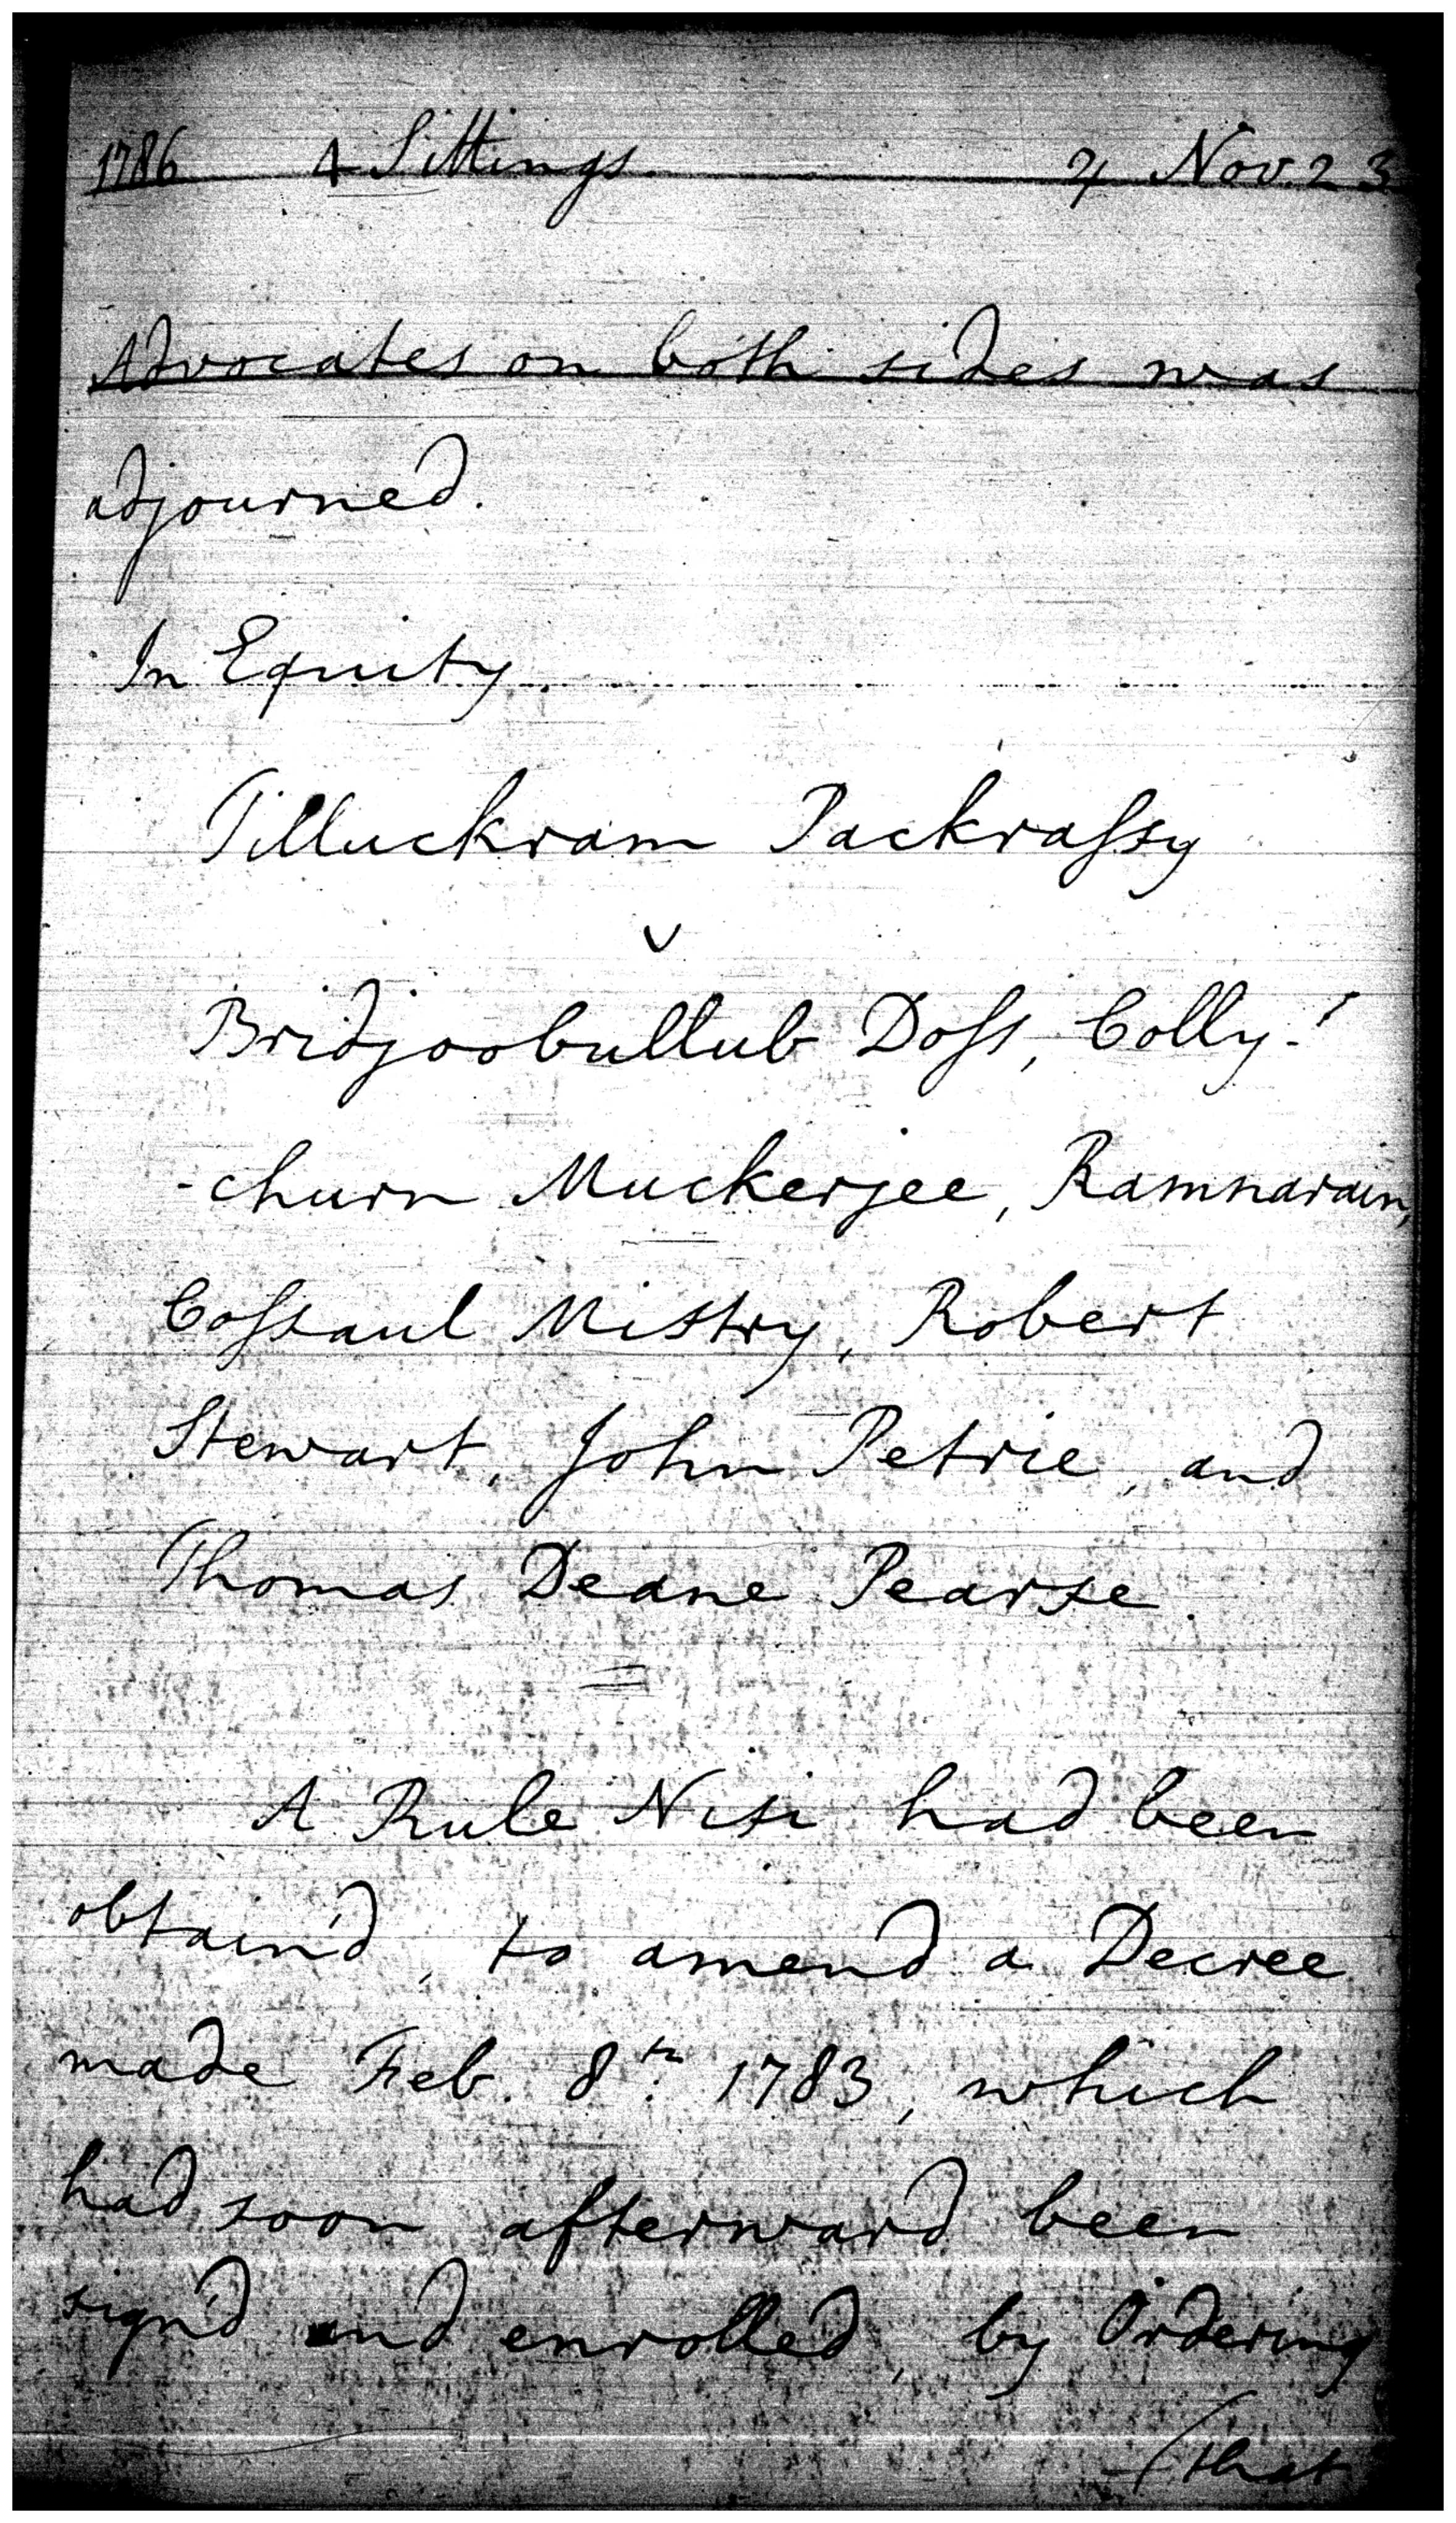 1786 4 Sittings. 4 Nov. 23
Advocates on both sides was
adjourned.
In Equity.
Tilluckram Packraſsy
v
Bridjoobullub Doſs, Colly-
-churn Muckerjee, Ramnarain,
Coſsaul Mistry, Robert
Stewart, John Petrie, and
Thomas Deane Pearse.
A Rule Nisi had been
obtain'd, to amend a Decree
made Feb. 8th. 1783, which
had soon afterward been
sign'd and enrolled, by Ordering
(that